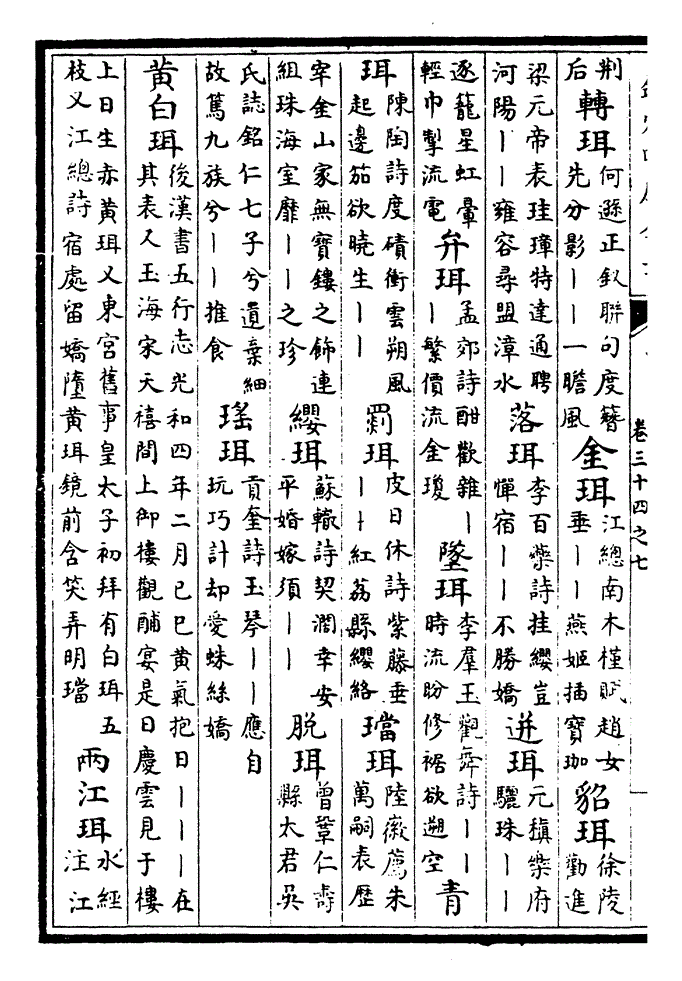 卷三十四之七
荆后轉珥何遜正釵聯句度簪先分影丨丨一瞻風金珥江總南木槿賦趙女垂丨丨燕姬插寶珈貂珥徐陵勸進
梁元帝表珪璋特達通聘河陽丨丨雍容尋盟漳水落珥李百藥詩挂纓豈憚宿丨丨不勝嬌迸珥元稹樂府驪珠丨丨
逐籠星虹暈輕巾掣流電弁珥孟郊詩酣歡雜丨丨繁價流金瓊墜珥李羣玉觀舞詩丨丨時流盼修裾欲遡空青
珥陳陶詩度磧衝雲朔風起邊笳欲曉生丨丨罽珥皮日休詩紫藤垂丨丨紅荔縣纓絡璫珥陸徽薦朱萬嗣表歷
宰金山家無寶鏤之飾連組珠海室靡丨丨之珍纓珥蘇轍詩契濶幸安平婚嫁須丨丨脫珥曾鞏仁壽縣太君吳
氏誌銘仁七子兮遺棄細故篤九族兮丨丨推食瑤珥貢奎詩玉琴丨丨應自玩巧計却愛蛛絲嬌
黄白珥後漢書五行志光和四年二月已巳黄氣抱日丨丨丨在其表又玉海宋天禧間上御樓觀酺宴是日慶雲見于樓
上日生赤黄珥又東宮舊事皇太子初拜有白珥五枝又江總詩宿處留嬌墮黄珥鏡前含笑弄明璫兩江珥水經注江